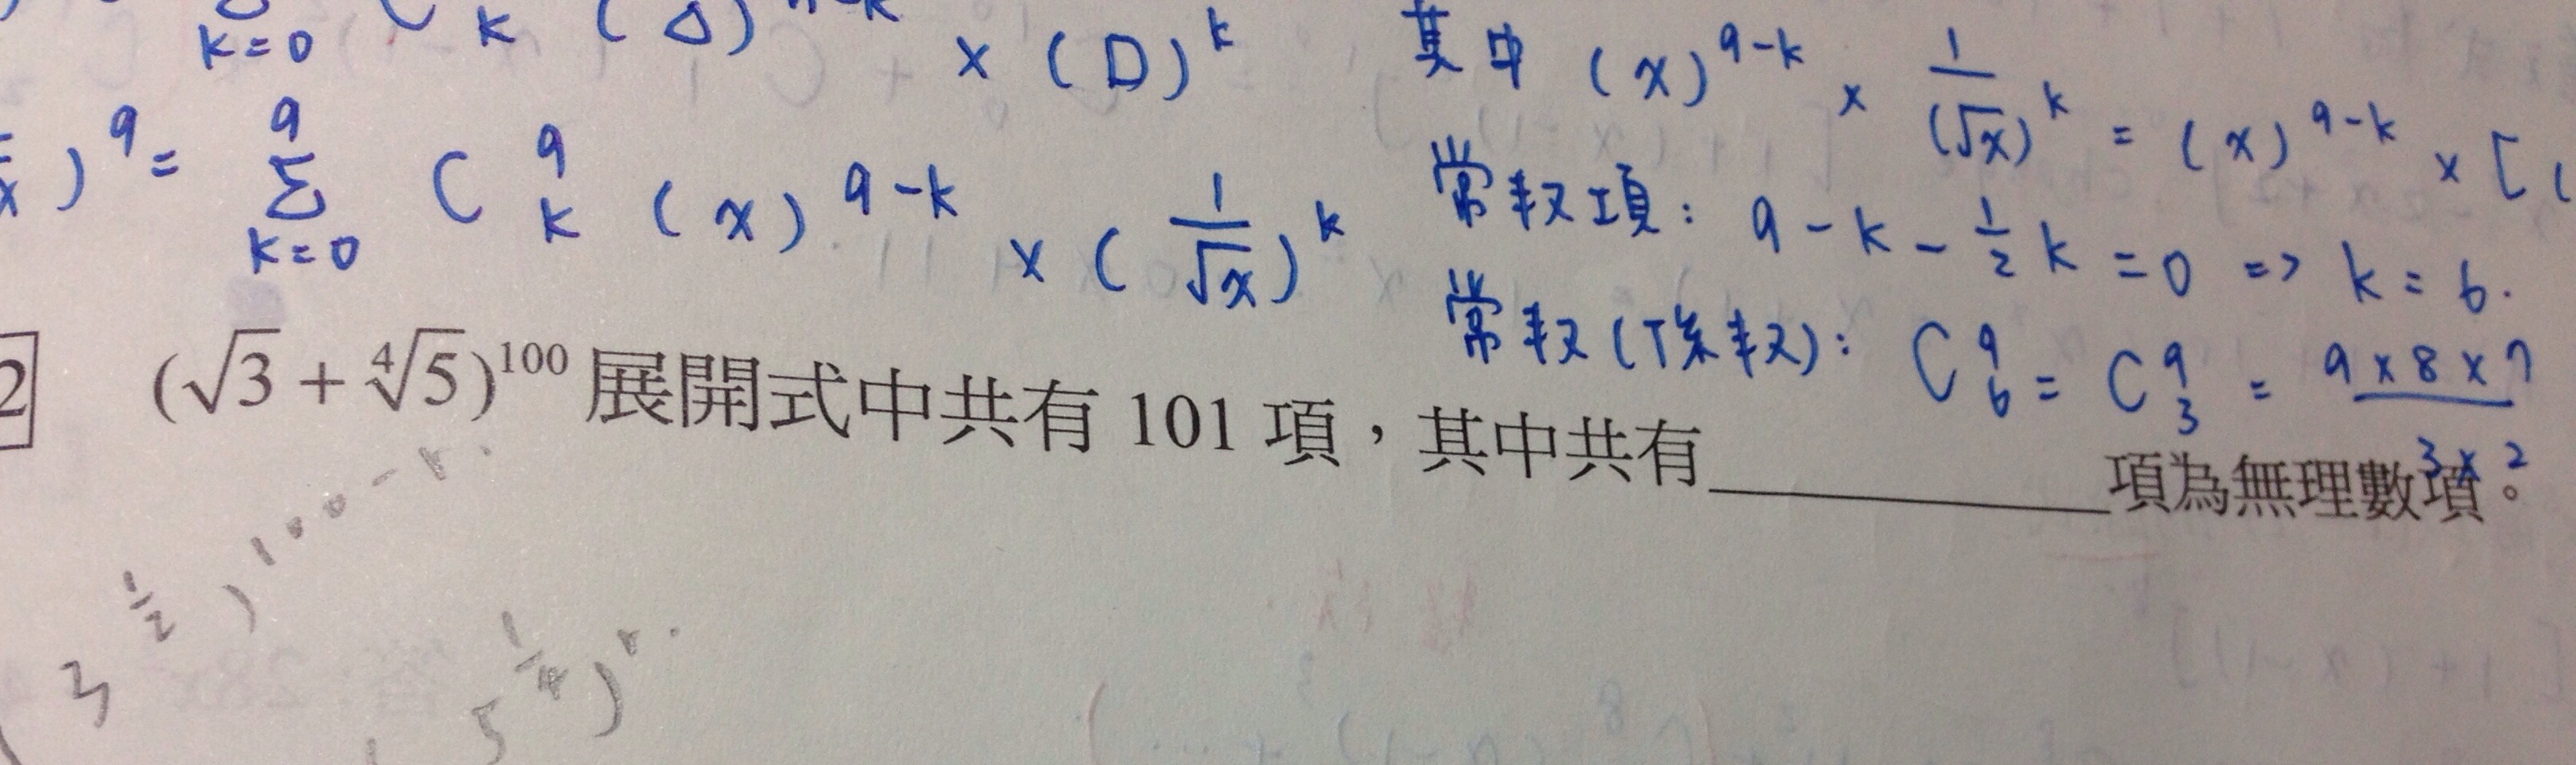 k=0 C k (△)^{n-k} × (□)^k 其中 (x)^{9-k} × \frac{1}{(√x)^k} = (x)^{9-k} × [(
)^9 = \sum_{k=0}^{9} C^9_k (x)^{9-k} × (\frac{1}{√x})^k 常数項: 9-k-\frac{1}{2}k=0 => k=6.
常数(係数): C^9_6 = C^9_3 = \frac{9×8×7}{3×2}
2 (√3 + ∜5)^{100} 展開式中共有 101 項，其中共有____項為無理數項。
(3^{\frac{1}{2}})^{100-r}.
(5^{\frac{1}{4}})^r.